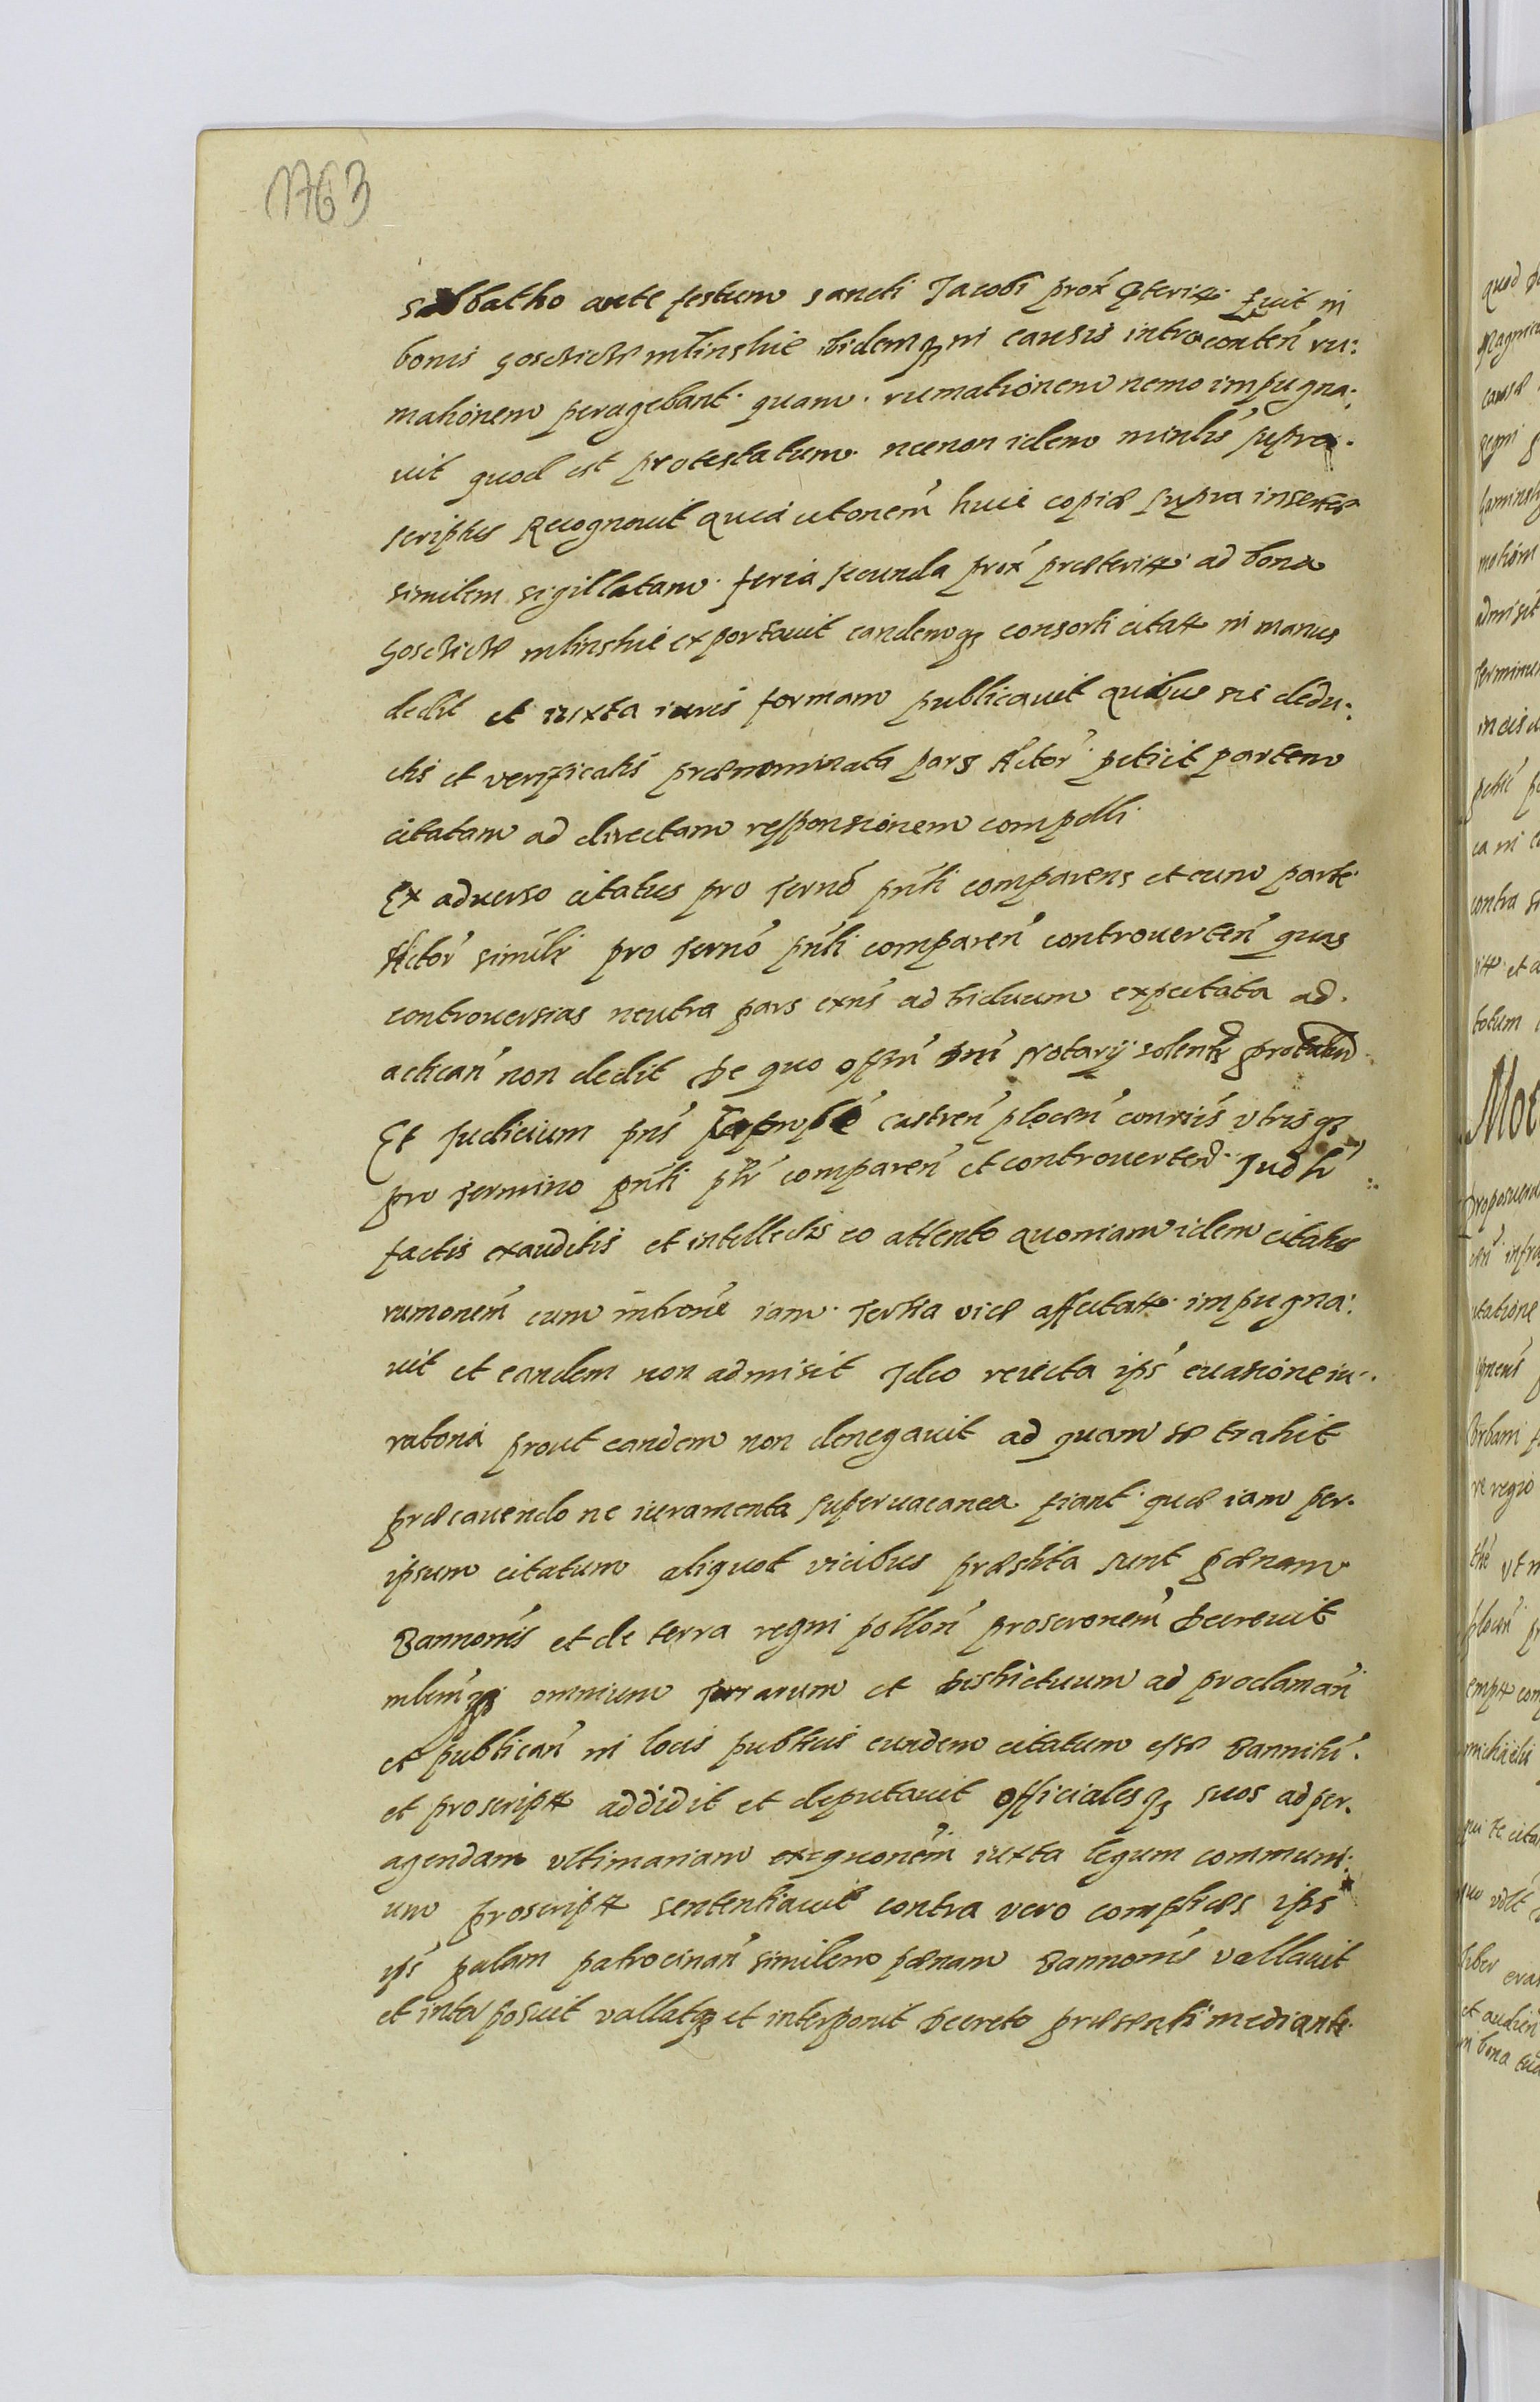 1763
sabbatho ante festum sancti Jacobi prox̕ pteritt. fuit in
bonis Goscicze mlinskie ibidemq3 in causis introconten̕ ru:
mationem peragebant. quam. rumationem nemo impugna:
uit quod est protestatum. necnon idem minlis̕ supra.
scriptus Recognouit quia citonem̕ huic copiæ supra insertæ
similem sigillatam. feria secunda prox̕ præteritt. ad bona
Goscicze mlinskie exportauit eandemq3 consorti citatt in manus
dedit et iuxta iuris formam publicauit quibus sic dedu:
ctis et verificatis prænominata pars Actor̕ petiit partem
citatam ad directam responsionem compelli.
Ex aduerso citatus pro termō pn̕ti comparens et cum parte
Actor̕ similr̕ pro termō pn̕ti comparen̕ controuerten̕ quas
controuersias neutra pars exn̕s ad triduum expectata ad.
actican̕ non dedit De quo offm̕ dni̕ Notarij solenr̕ protatur
Et Judicium pn̕s castren̕ plocen̕ conuis̕ utrisq3
pro termino pn̕ti ptr̕ comparen̕ et controuerten̕. Jud li̕
factis exauditis et intellectis eo attento quoniam idem citatus
rumonem̕ cum intrōne iam. tertia vice affectatt. impugna:
uit et eandem non admisit Ideo reiecta ips̕ euasione iu:
ratoria prout eandem non denegauit ad quam se trahit
præcauendo ne iuramenta superuacanea fiant. quæ iam per.
ipsum citatum aliquot vicibus præstita sunt pænam
Bannonis̕ et de terra regni pollon̕ proscronem̕ Decreuit
mlem̕q3 omnium terrarum et districtuum ad proclaman̕
et publican̕ in locis publicis eundem citatum esse Bannitū.
et proscriptt addidit et deputauit officialesq3 suos ad per.
agendam ultimariam exequonem̕ iuxta legum communi:
um proscriptt sententiauit contra vero complices ips̕
ips̕ palam patrocinan̕ similem pænam Bannonis̕ vallauit
et interposuit vallatq3 et interponit Decreto præsenti mediante.